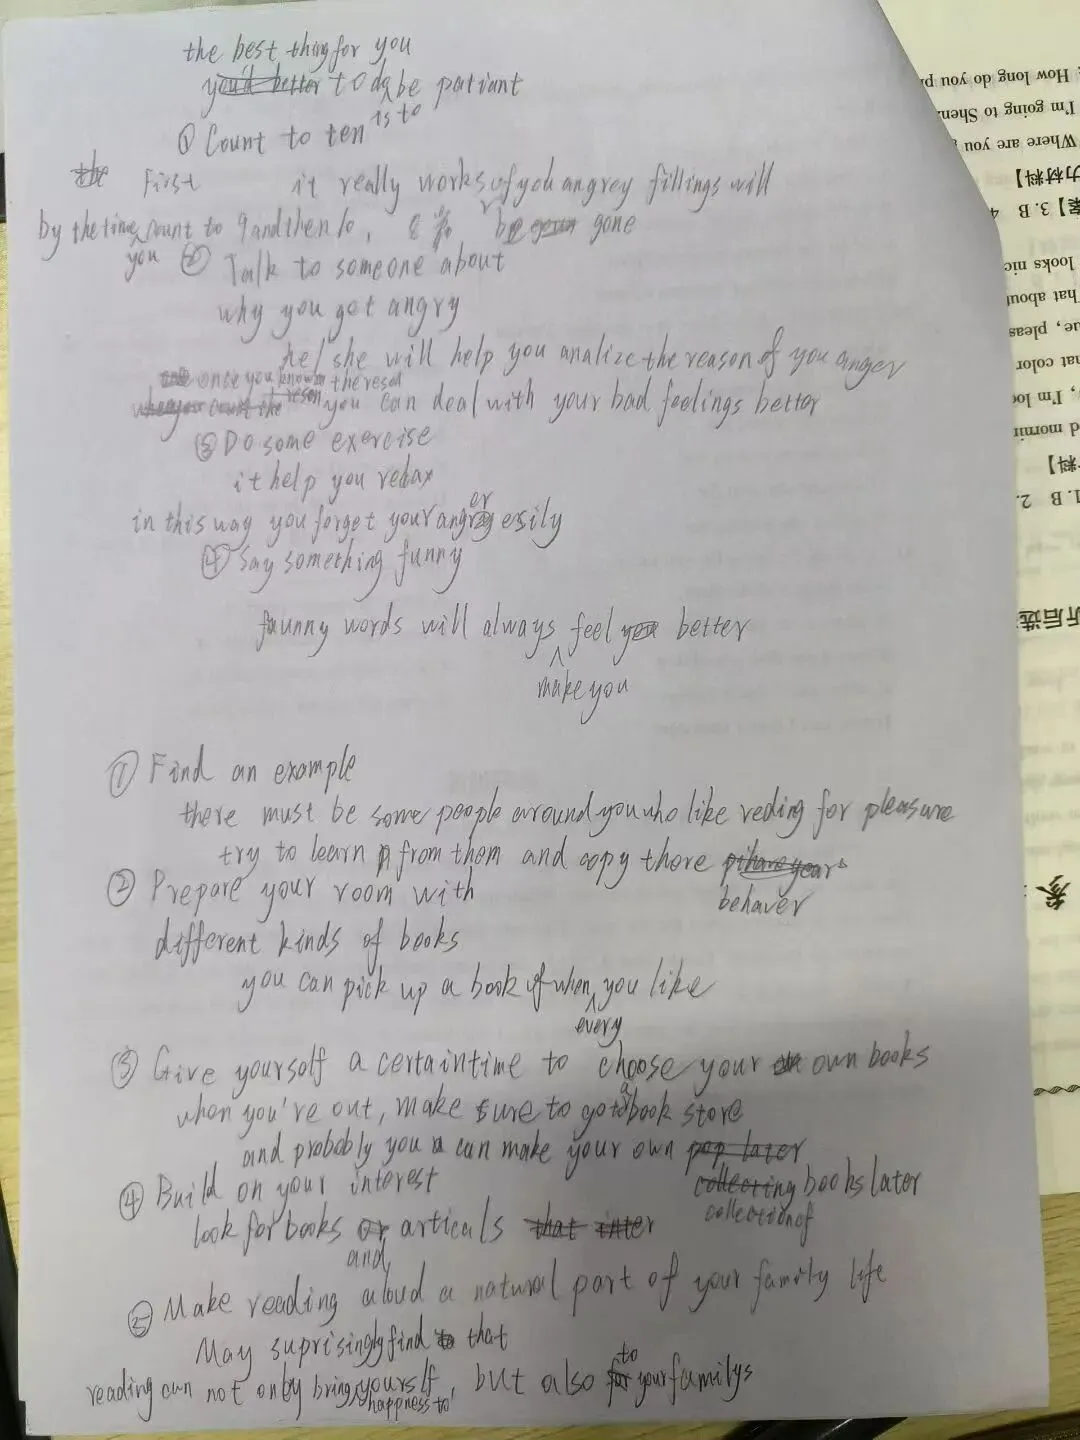 the best thing for you
you'd better to do be patiant
is to
① Count to ten
the First it really works if you angrey fillings will
by the time count to 9 and then 10, be gone
you
② Talk to someone about
why you got angry
he/she will help you analize the reason of you anger
once you known the reson
reson you can deal with your bad feelings better
③ Do some exercise
it help you relax
er
in this way you forget your angry esily
④ Say something funny
funny words will always feel you better
make you
① Find an example
there must be some people around you who like reding for pleasure
try to learn from them and copy there
② Prepare your room with behaver
different kinds of books
you can pick up a book if when you like
every
③ Give yourself a certain time to choose your own books
a
when you're out, make sure to go to book store
and probably you can make your own pop later
④ Build on your interest collecting books later
look for books or articals that inter collection of
and
⑤ Make reading aloud a natural part of your family life
May suprisingly find to that
to
reading can not only bring yourslf, but also for your familys
happness to
How long do you
I'm going to Shen
Where are you
力材料】
3. B 4
looks nic
hat about
ue, pleas
hat color
, I'm loo
d mornin
料】
1. B 2.
听后选
参